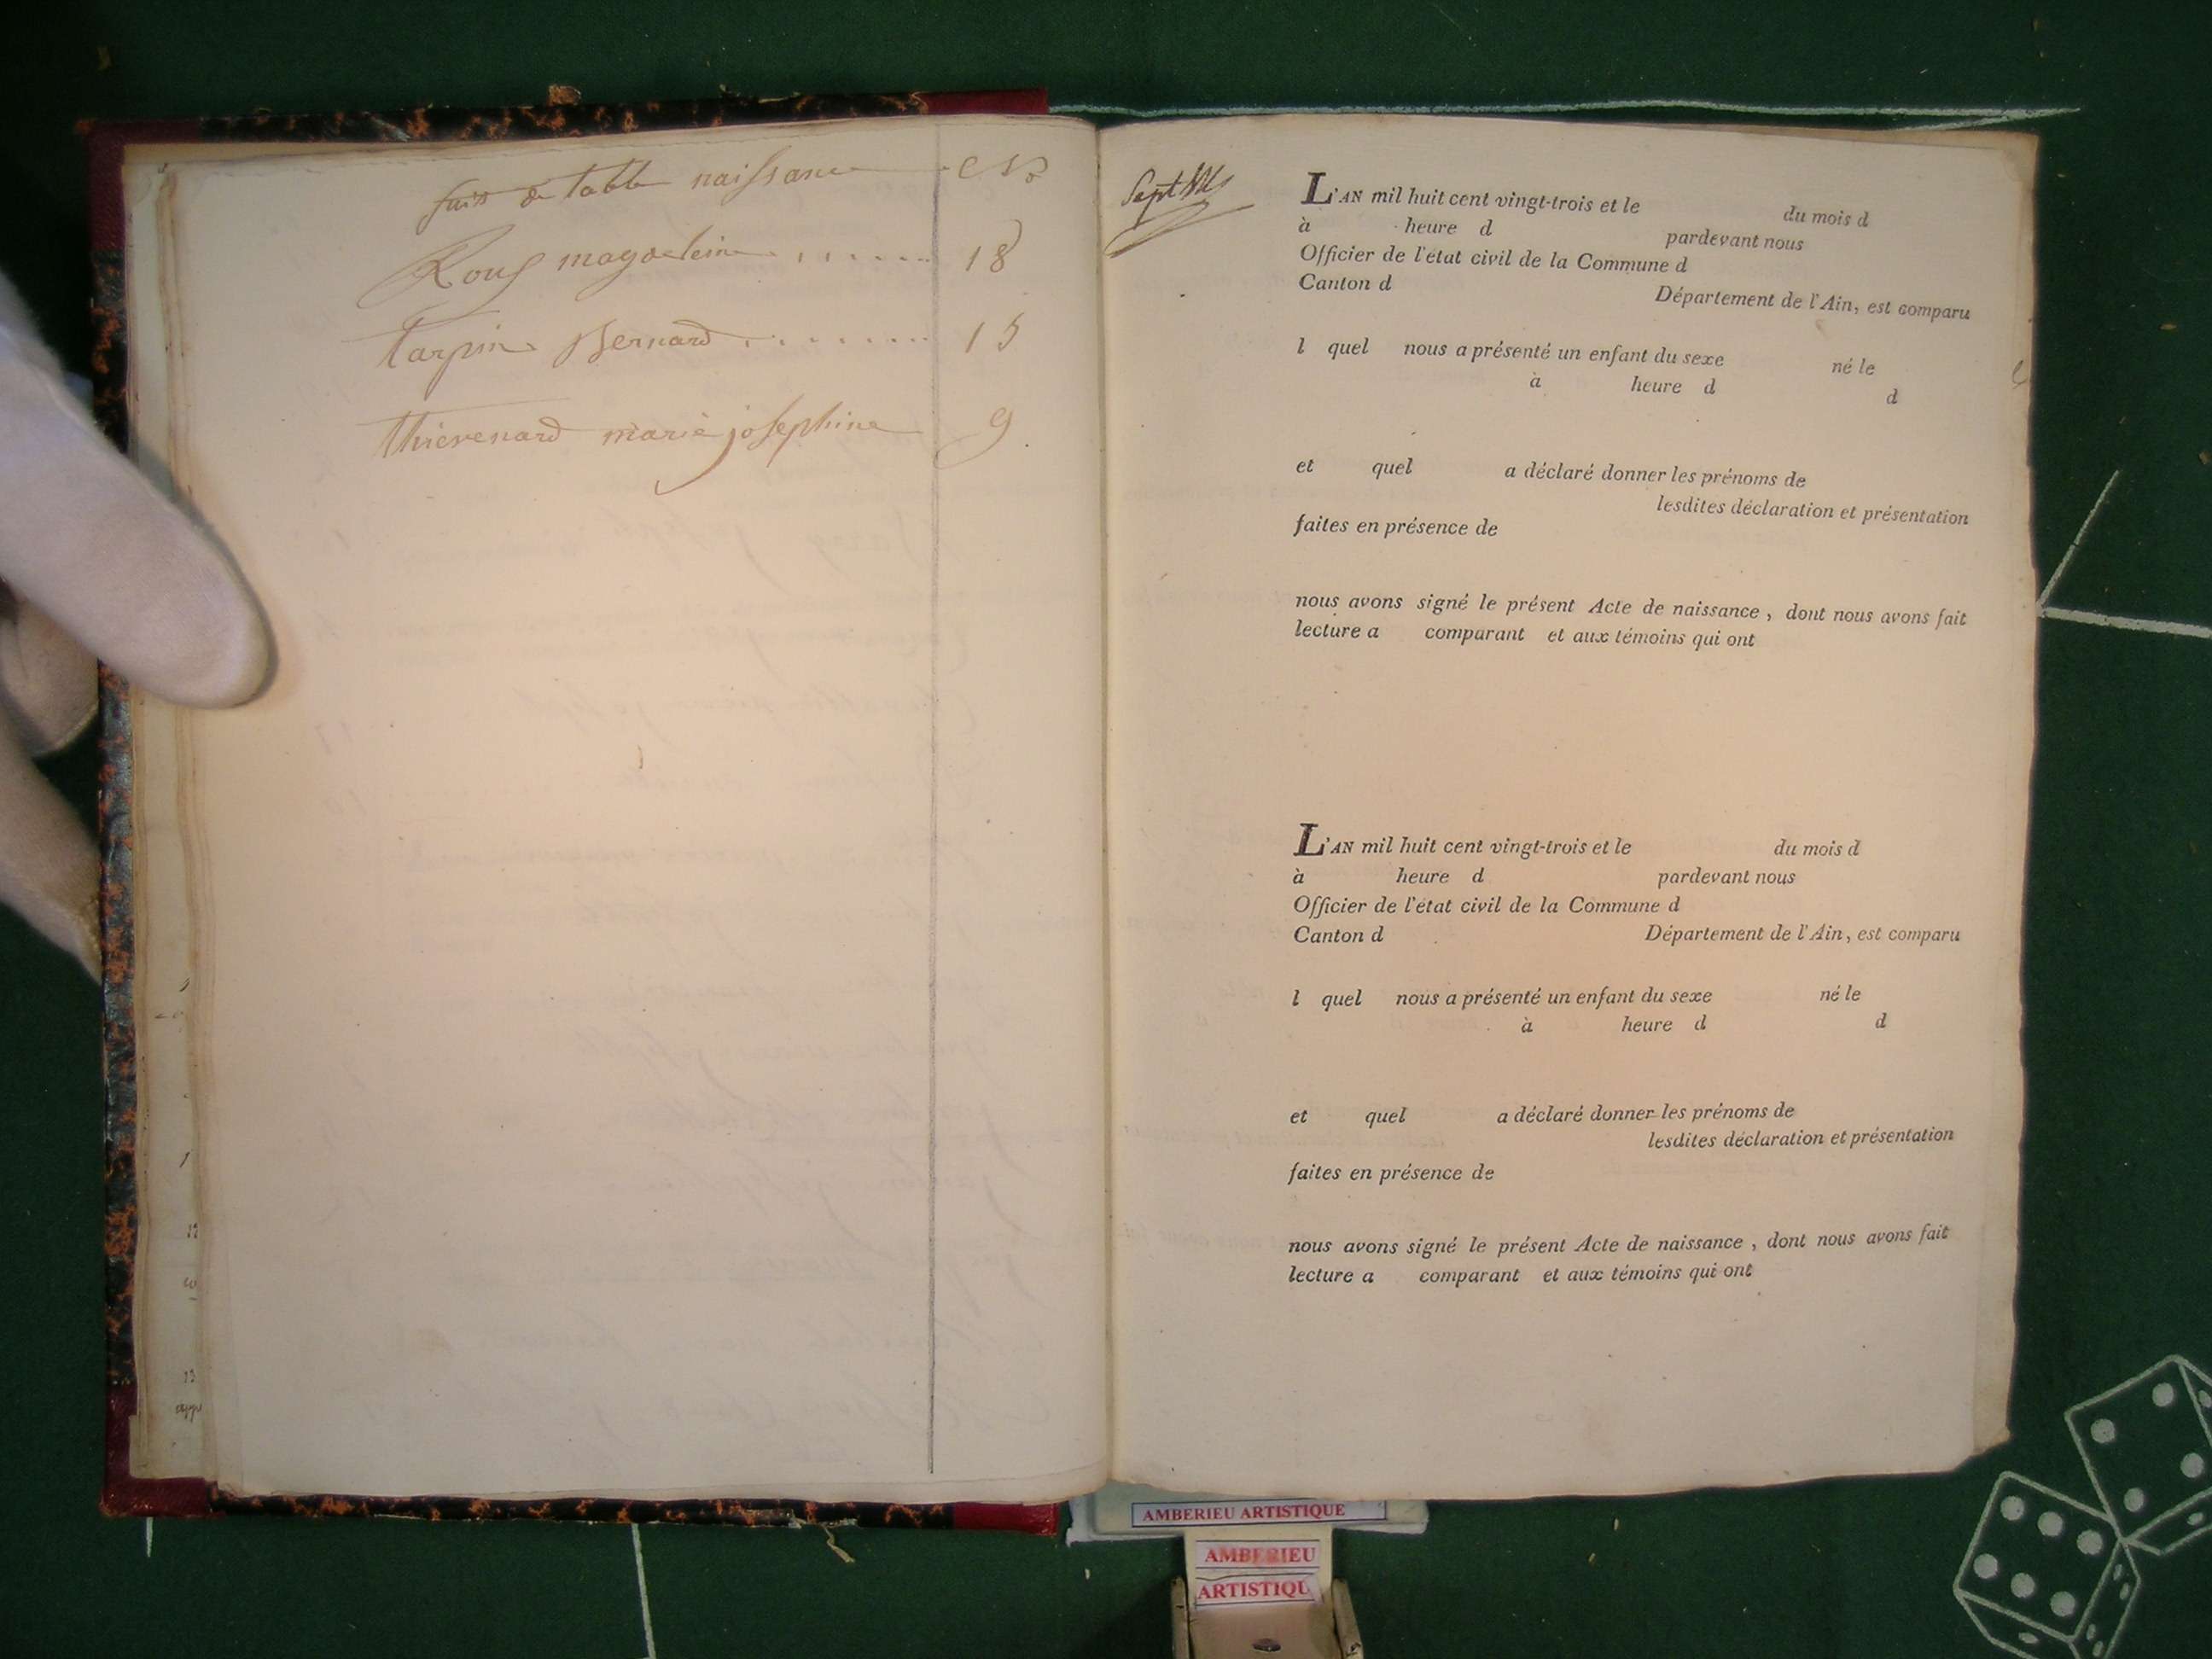 suite de table naissance No
Roux magdeleine ....... 18
tarpin Bernard ........ 15
thievenard marie josephine 9
L'AN mil huit cent vingt-trois et le du mois d
à heure d pardevant nous
Officier de l'état civil de la Commune d
Canton d Département de l'Ain, est comparu
l quel nous a présenté un enfant du sexe né le
à heure d d
et quel a déclaré donner les prénoms de
lesdites déclaration et présentation
faites en présence de
nous avons signé le présent Acte de naissance, dont nous avons fait
lecture a comparant et aux témoins qui ont
L'AN mil huit cent vingt-trois et le du mois d
à heure d pardevant nous
Officier de l'état civil de la Commune d
Canton d Département de l'Ain, est comparu
l quel nous a présenté un enfant du sexe né le
à heure d d
et quel a déclaré donner les prénoms de
lesdites déclaration et présentation
faites en présence de
nous avons signé le présent Acte de naissance, dont nous avons fait
lecture a comparant et aux témoins qui ont
AMBERIEU ARTISTIQUE
AMBERIEU
ARTISTIQU